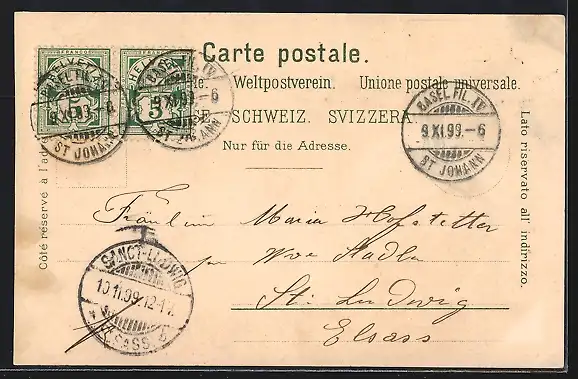 FRANCO FRANCO
HELVETIA HELVETIA
5 5
BASEL FIL. IV
9 XI 99 - 6
ST JOHANN
BASEL FIL. IV
9 XI 99 - 6
ST JOHANN
Carte postale.
Weltpostverein. Unione postale universale.
SCHWEIZ. SVIZZERA.
Nur für die Adresse.
BASEL FIL. IV
9 XI 99. - 6
ST JOHANN
Côté réservé à l'ad
Lato riservato all' indirizzo.
Fräulein Maria Hofstetter
Wve Stadler
St. Ludwig
Elsass
T
SANCT-LUDWIG
10 11 99 12-1